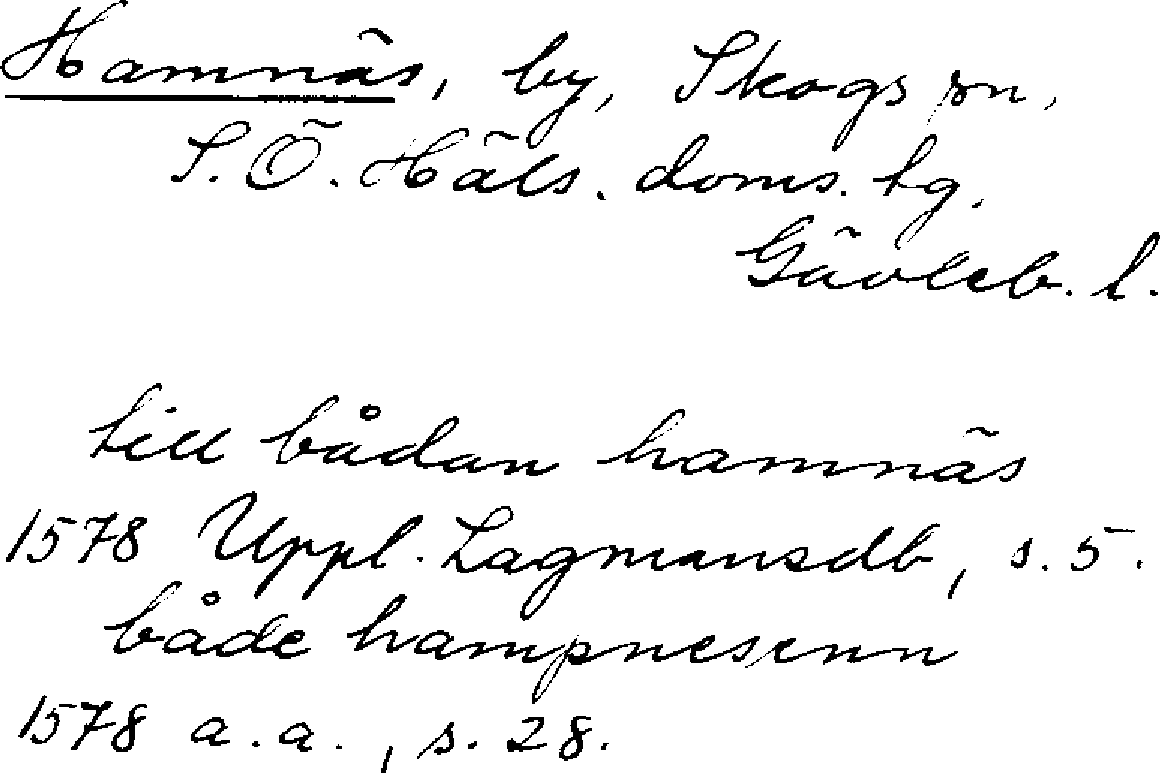 Hamnäs, by, Skogs sn,
S. Ö. Häls. doms. tg.
Gävleb. l.
till bådan hamnäs
1578 Uppl. Lagmansdb, s. 5.
både hampnesenn
1578 a. a., s. 28.